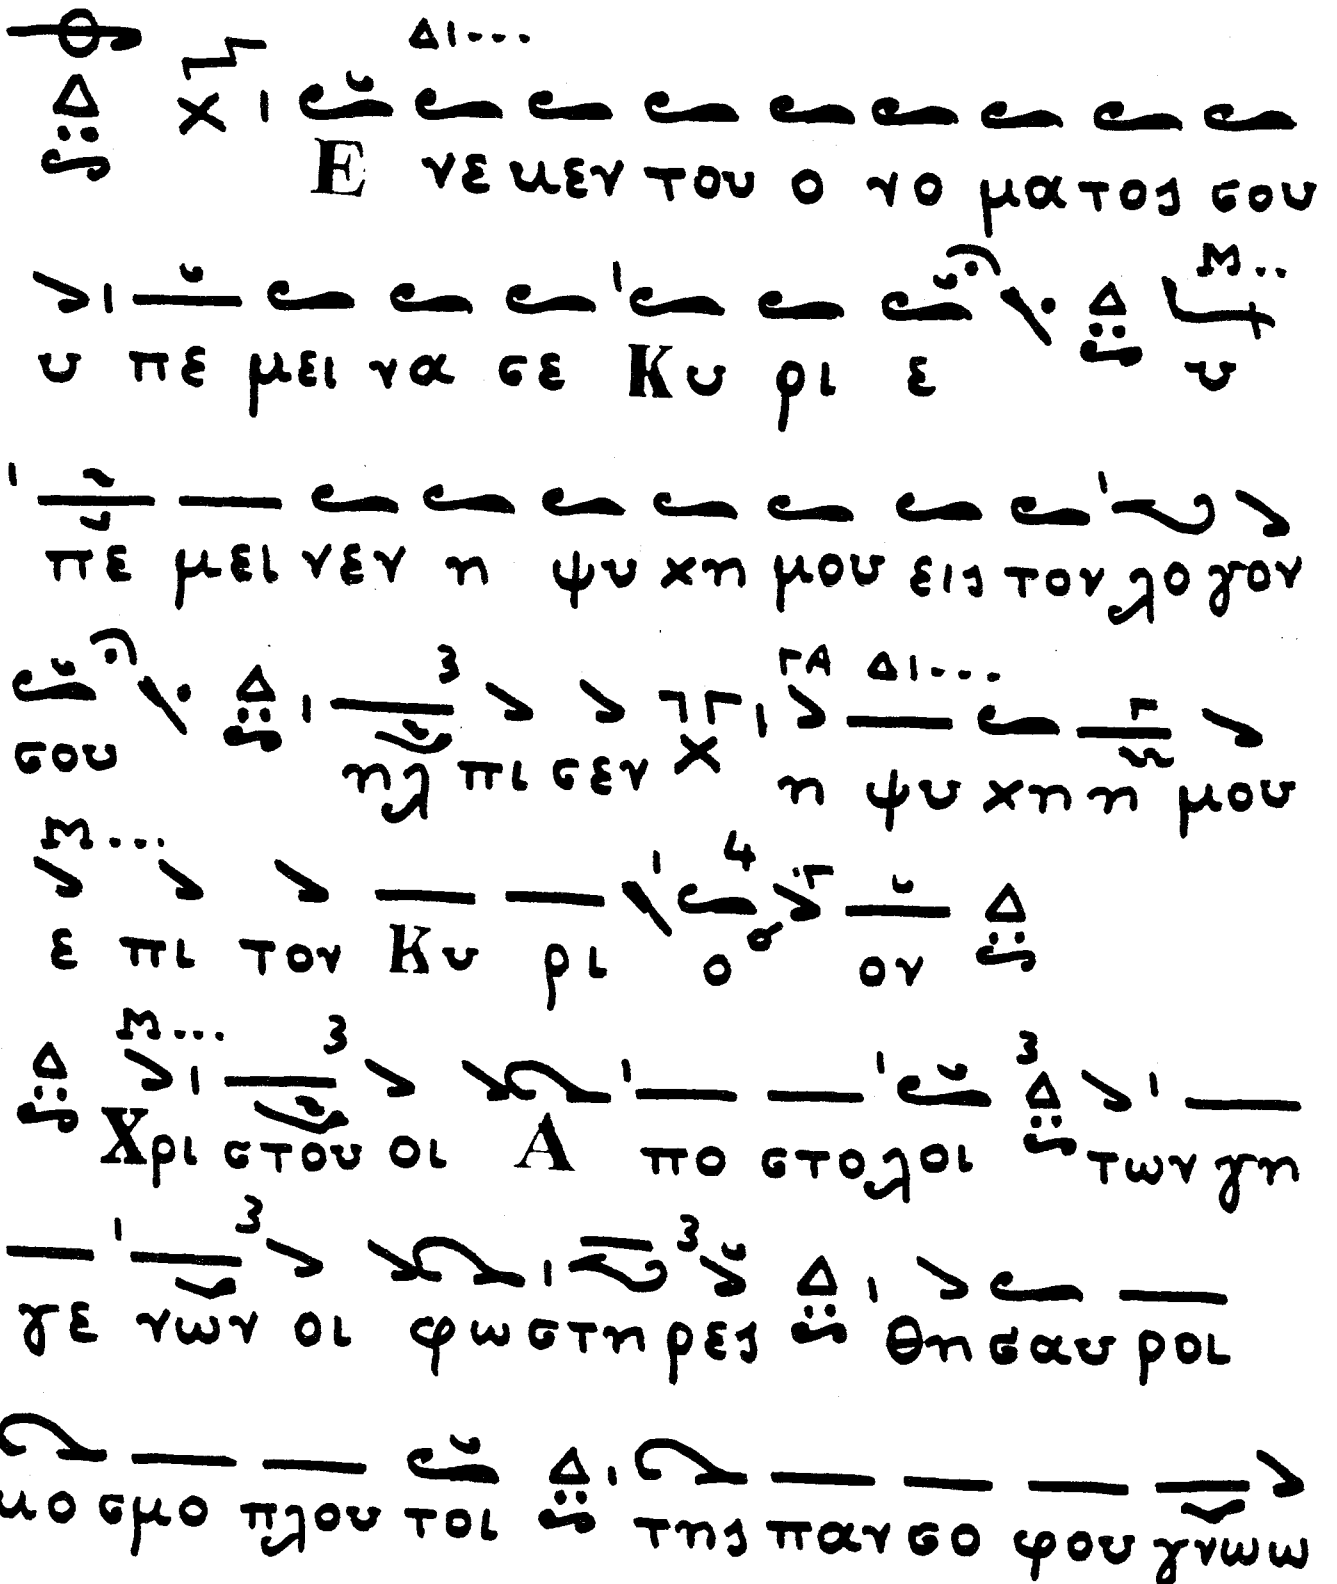 Δι...
Ε νε κεν του ο νο μα τος σου
υ πε μει να σε Κυ ρι ε υ
πε μει νεν η ψυ χη μου εις τον λο γον
σου ηλ πι σεν η ψυ χη η μου
ε πι τον Κυ ρι ο ον
Χρι στου οι Α πο στο λοι των γη
γε νων οι φω στη ρες θη σαυ ροι
κο σμο πλου τοι της παν σο φου γνω ω